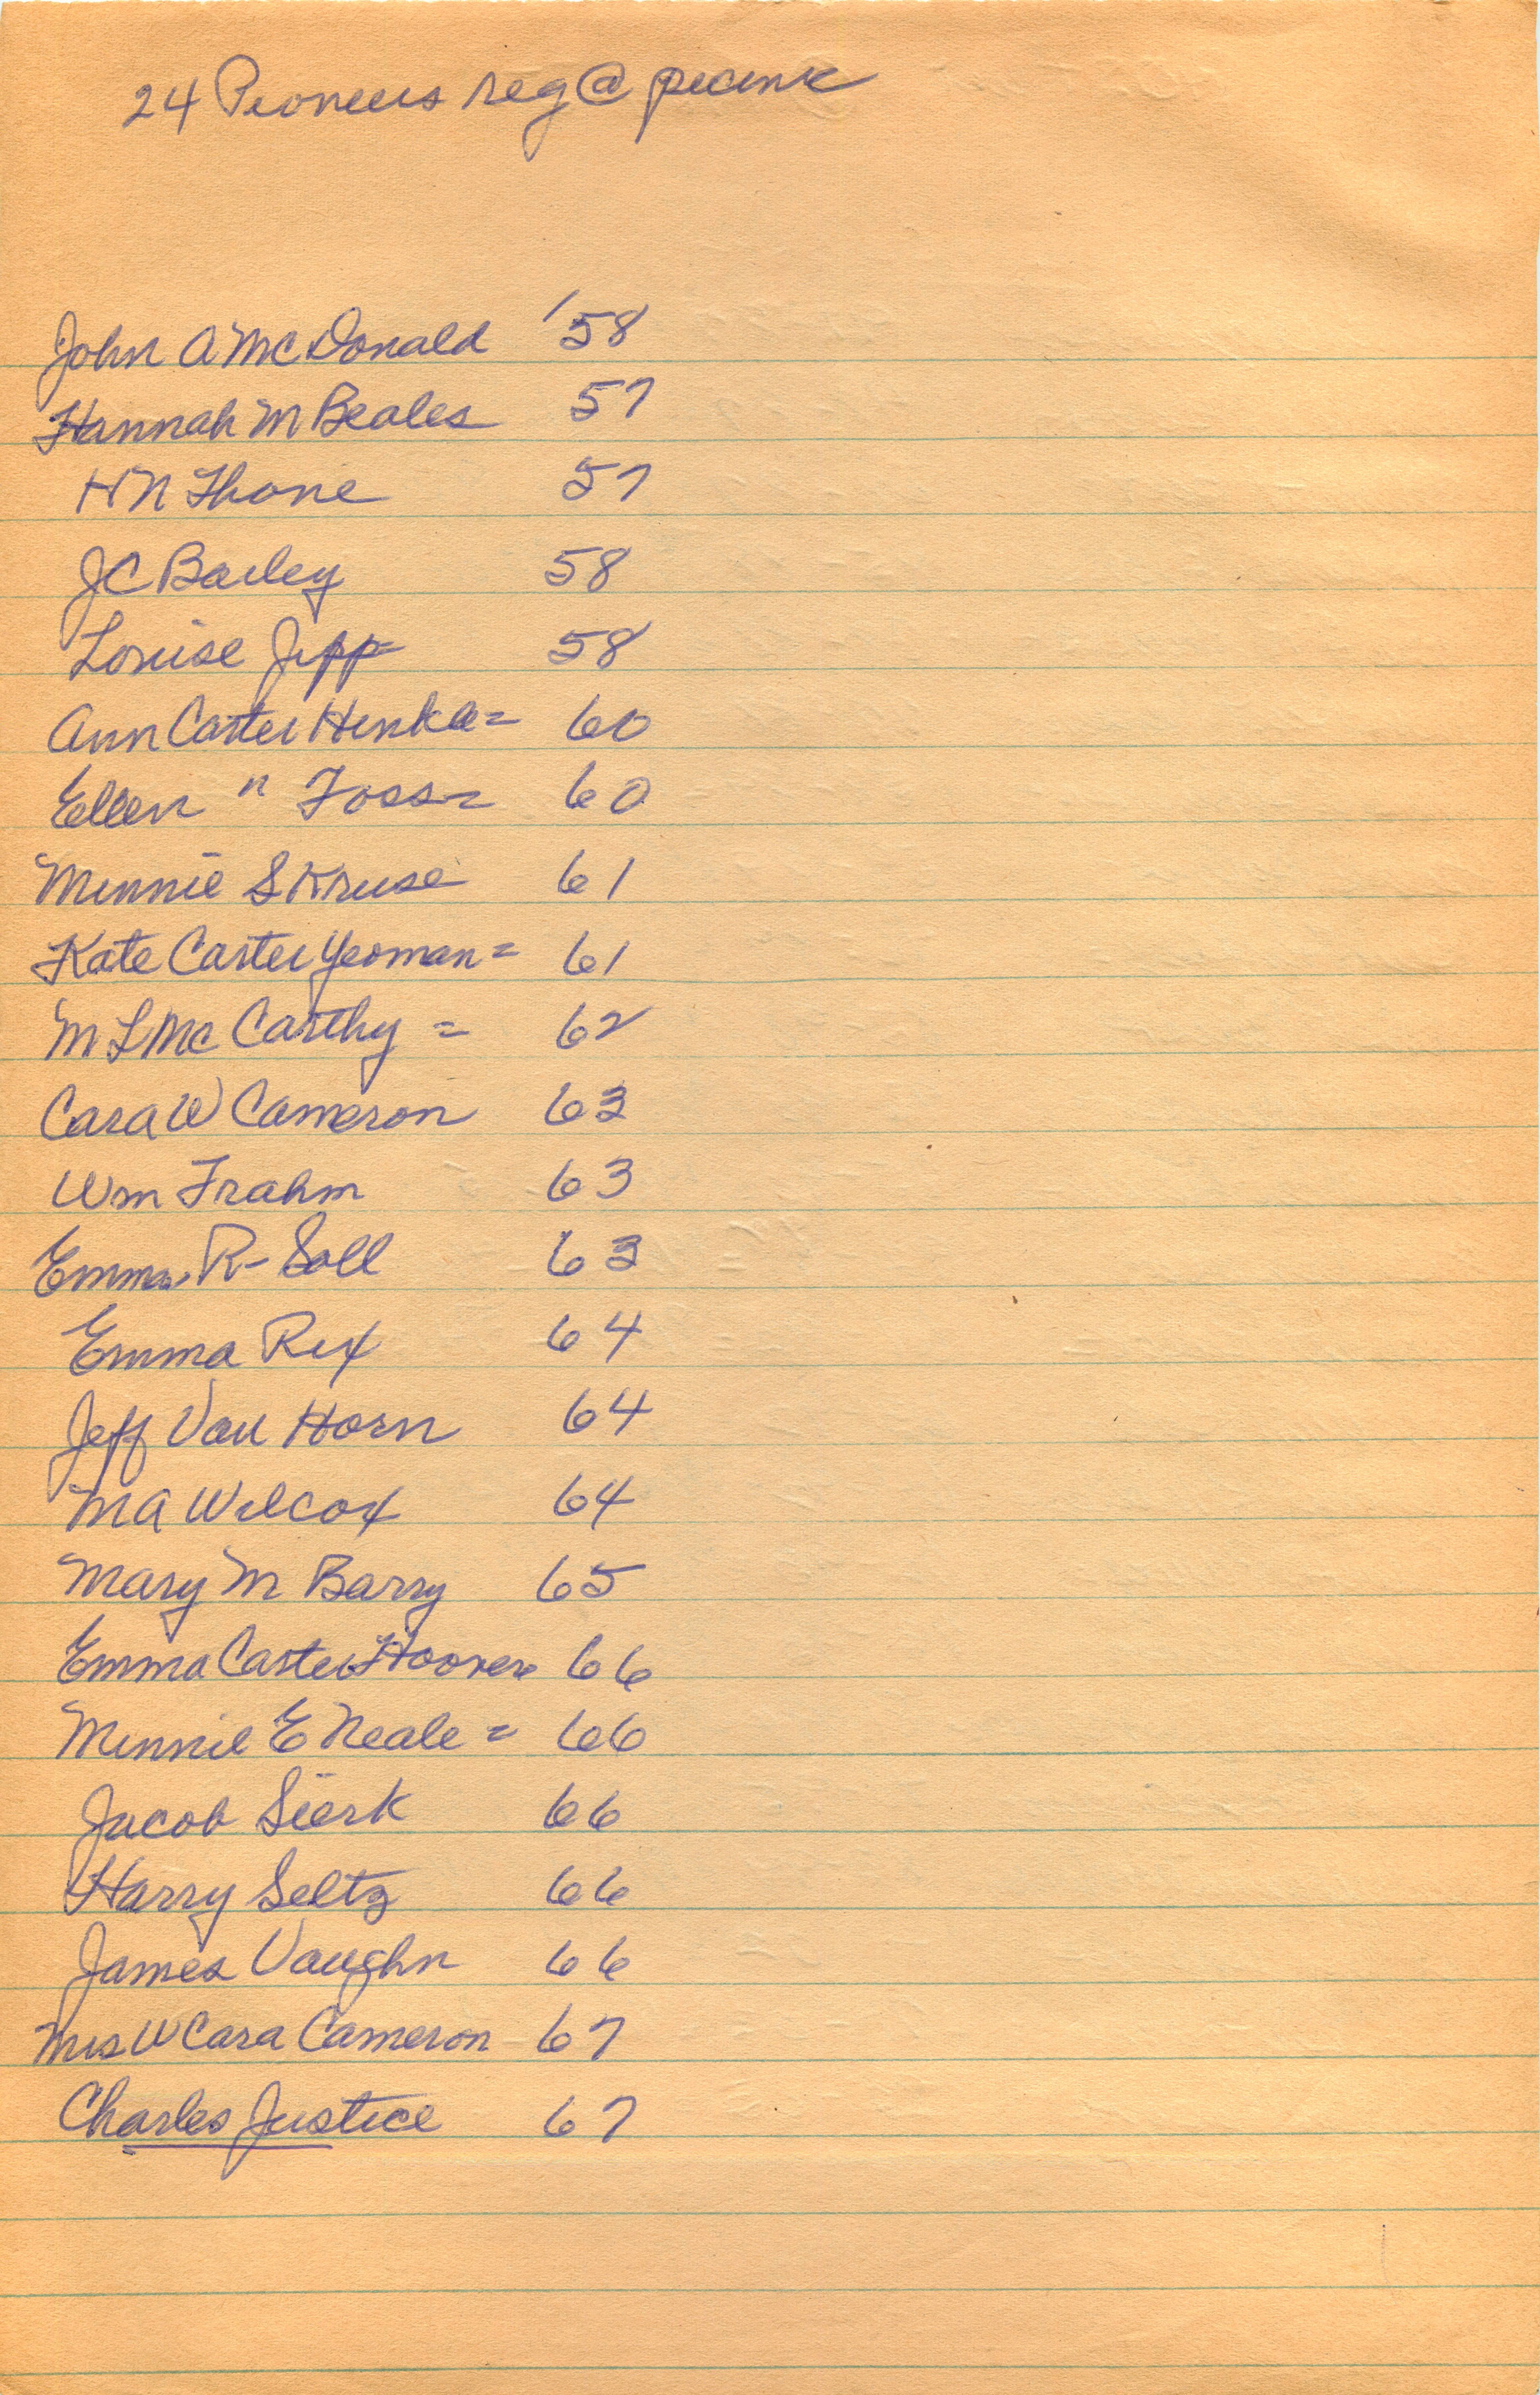 24 Pioneers reg @ picnic
John A McDonald '58
Hannah M Beales 57
HN Thone 57
JC Bailey 58
Louise Jipp 58
Ann Carter Henka= 60
Ellen " Foss= 60
Minnie S Kruse 61
Kate Carter Yeoman= 61
M L McCarthy = 62
Cara W Cameron 63
Wm Frahm 63
Emma R- Soll 63
Emma Rix 64
Jeff Van Horn 64
MA Wilcox 64
Mary M Barry 65
Emma Carter Hoover 66
Minnie E Neale = 66
Jacob Sierk 66
Harry Seltz 66
James Vaughn 66
Mrs W Cara Cameron 67
Charles Justice 67